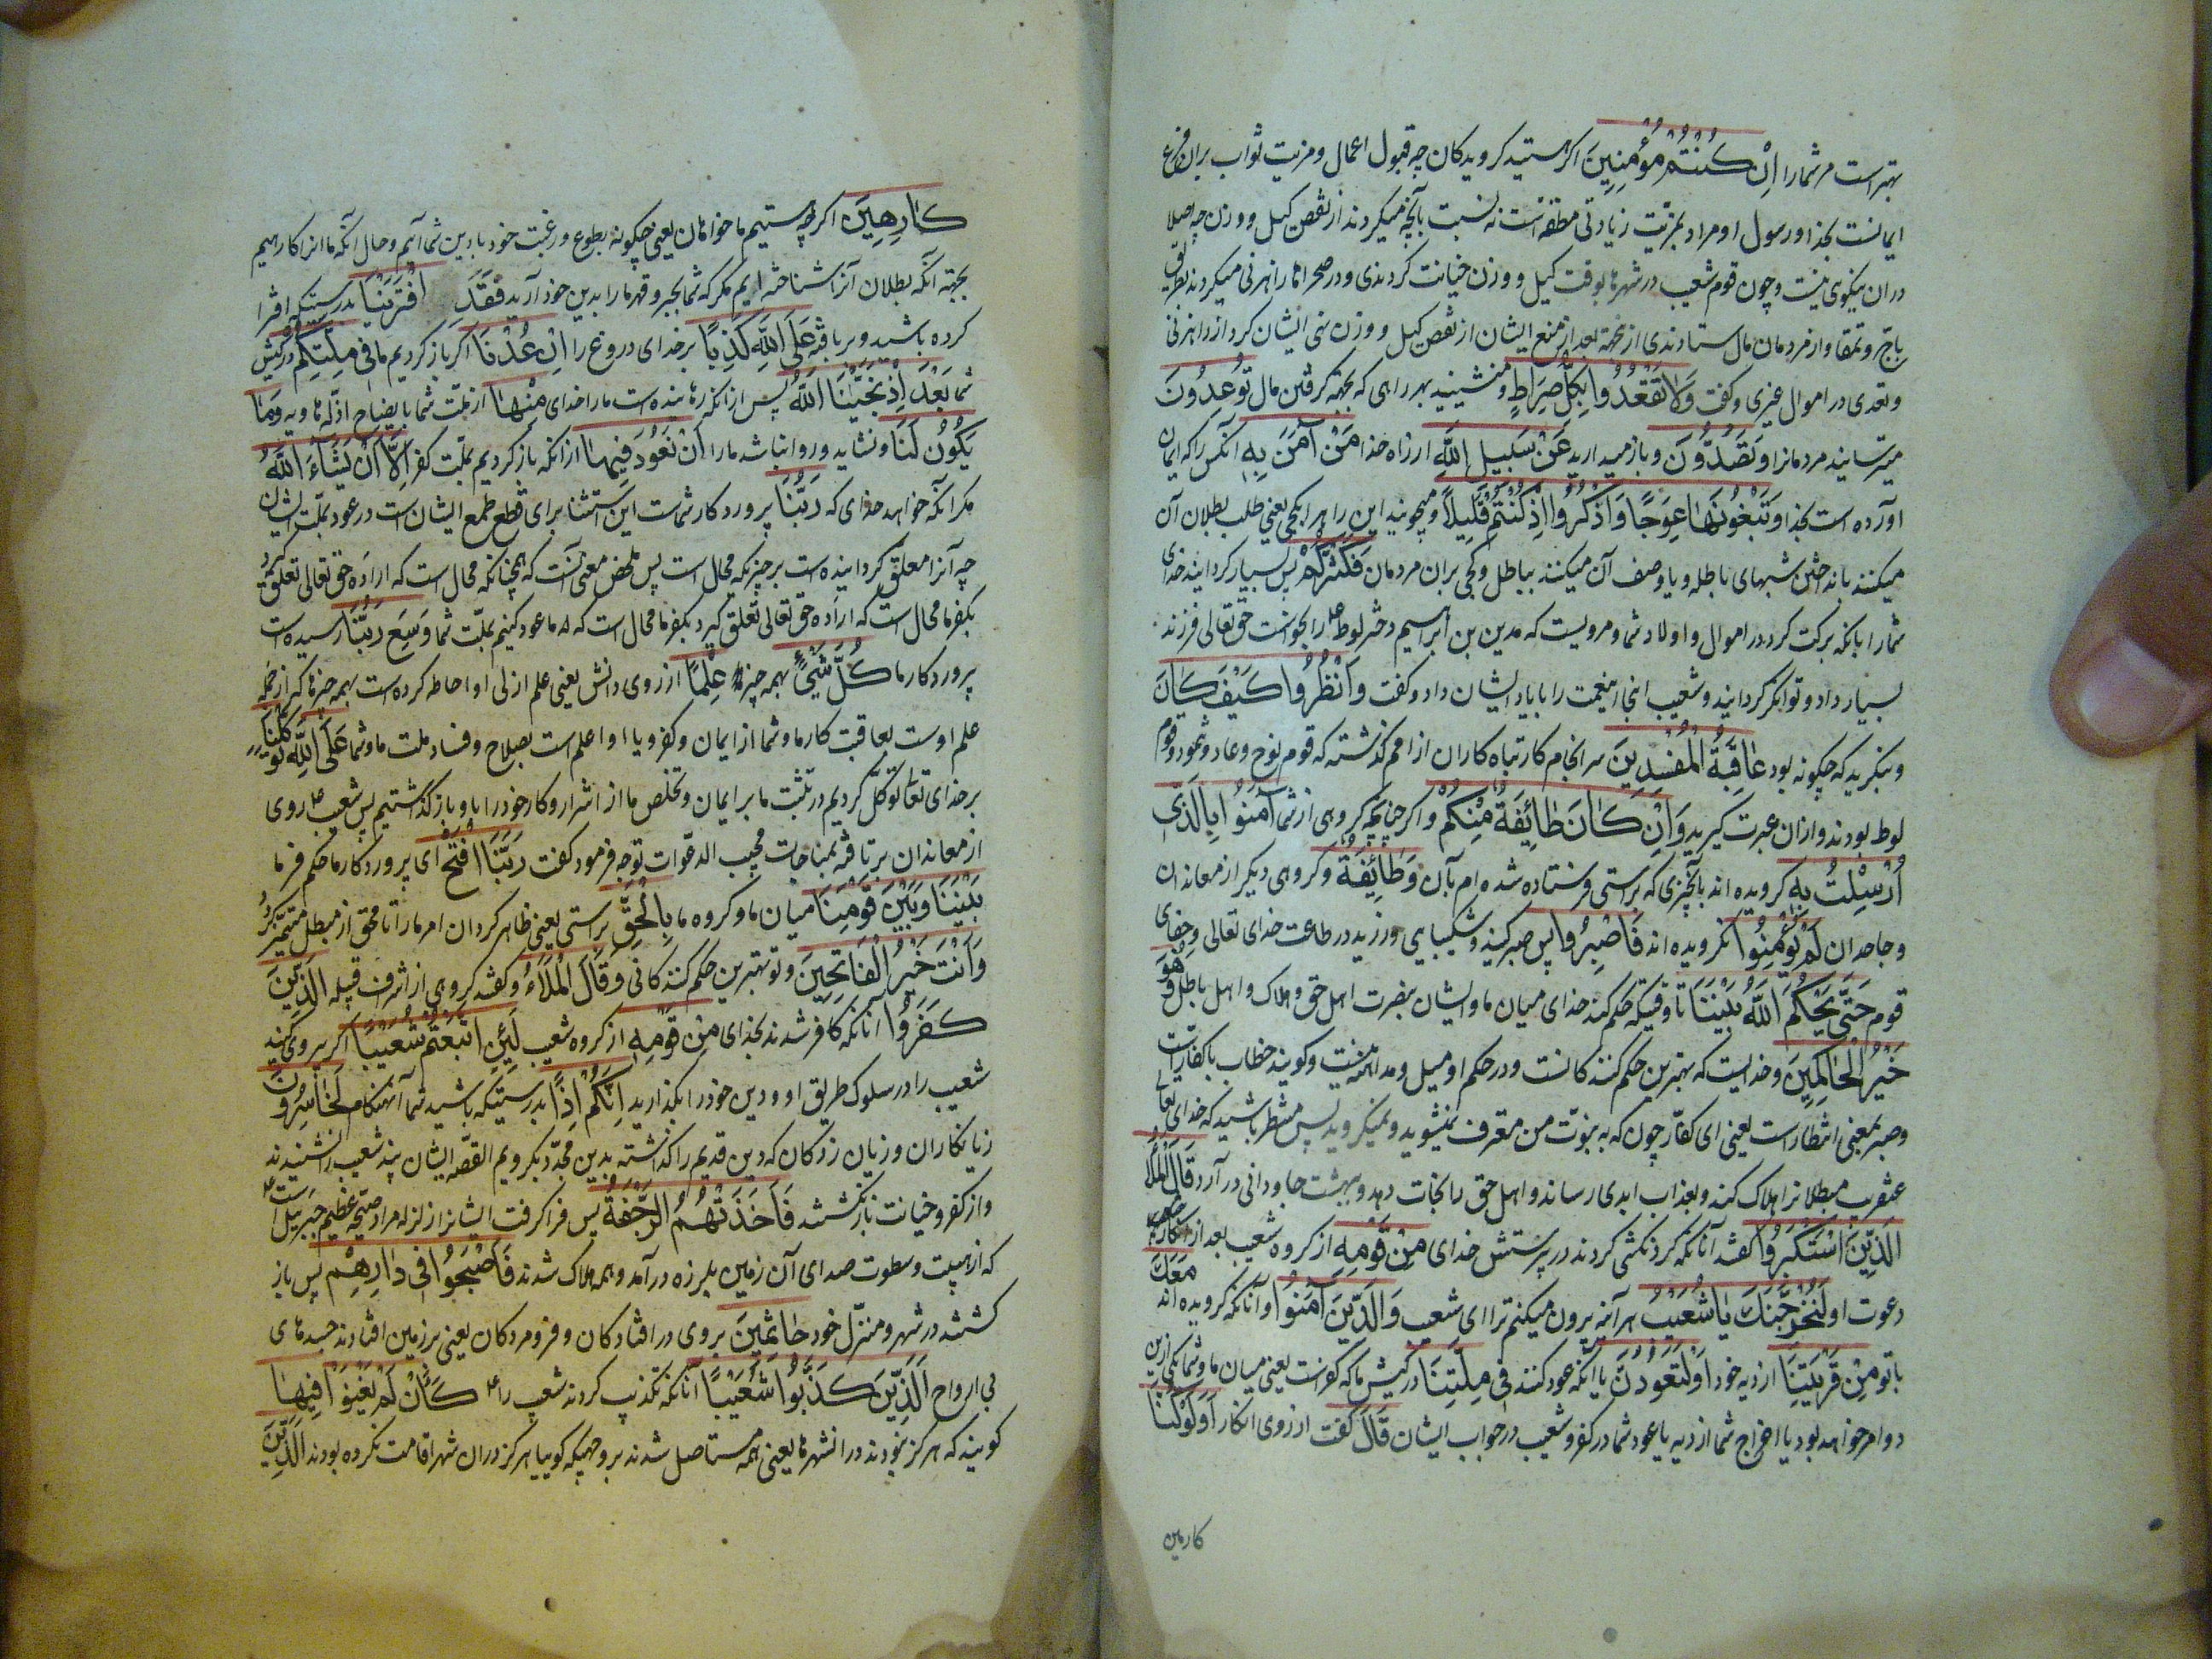 بهتر است مر شما را اِنْ كُنْتُمْ مُؤْمِنِينَ اکر هستید کرویدکان چه قبول اعمال و مزیت ثواب بران فرع
ایمانست بخدا و رسول او مراد بمزیّت زیادتی مطلقه است نه نسبت بآنچه میکردند از نقص کیل و وزن چه اصلا
دران نیکوی نیست و چون قوم شعیب در شهرها بوقت کیل و وزن خیانت کردندی و در صحراها راهزنی میکردند بطریق
باج و تمغا و از مردمان مال ستادندی از نجهة بعد از منع ایشان از نقص کیل و وزن نهی ایشان کرد از راهزنی
و تعدی در اموال غیری و کفت وَلَا تَقْعُدُوا بِكُلِّ صِرَاطٍ و منشینید بهر راهی که بجهة کرفتن مال تُوعِدُونَ
میترسانید مردمانرا وَتَصُدُّونَ و باز میدارید عَنْ سَبِيلِ اللَّهِ از راه خدا مَنْ آمَنَ بِهِ آنکس را که ایمان
آورده است بخدا وَتَبْغُونَهَا عِوَجًا وَاذْكُرُوا اِذْ كُنْتُمْ قَلِيلًا و میجویند این راه را کجی یعنی طلب بطلان آن
میکنند بانداختن شبهای باطله و یا وصف آن میکنند بباطل و کجی بران مردمان فَكَثَّرَكُمْ پس بسیار کردانید خدای
شما را بانکه برکت کرد در اموال و اولاد شما و مرویست که مدین بن ابراهیم دختر لوط را بخواست حق تعالی فرزند
بسیار داد و توانکر کردانید و شعیب اینجا نعمت را بایاد ایشان داد و کفت وَانْظُرُوا كَيْفَ كَانَ
و بنکرید که چکونه بود عَاقِبَةُ الْمُفْسِدِينَ سر انجام کار تباه کاران از امم کذشته که قوم نوح و عاد و ثمود و قوم
لوط بودند و ازان عبرت کیرید وَاِنْ كَانَ طَائِفَةٌ مِنْكُمْ و اکر چنانچه کروهی از شما آمَنُوا بِالَّذِي
اُرْسِلْتُ بِهِ کرویده اند بآنچیزی که براستی فرستاده شده ام بآن وَطَائِفَةٌ و کروهی دیکر از معاندان
و جاحدان لَمْ يُؤْمِنُوا نکرویده اند فَاصْبِرُوا پس صبر کنید و شکیبایی ورزید در طاعت خدای تعالی و جفای
قوم حَتَّى يَحْكُمَ اللَّهُ بَيْنَنَا تا وقتیکه حکم کند خدای میان ما و ایشان بنصرت اهل حق و هلاک و اهل باطل وَهُوَ
خَيْرُ الْحَاكِمِينَ و خدایست که بهترین حکم کنندکانست و در حکم او میل و مداهنه نیست و کویند خطاب با کفارست
و صبر بمعنی انتظارست یعنی ای کفّار چون که به نبوّت من معترف نمیشوید و نمیکروید پس منتظر باشید که خدای تعالی
عنقریب مبطلانرا هلاک کند و بعذاب ابدی رساند و اهل حق را نجات دهد و ببهشت جاودانی در آرد قَالَ الْمَلَأُ
الَّذِينَ اسْتَكْبَرُوا کفتند آنانکه کردنکشی کردند در پرستش خدای مِنْ قَوْمِهِ از کروه شعیب بعد از انکار
دعوت او لَنُخْرِجَنَّكَ يَا شُعَيْبُ هر آینه بیرون میکنیم ترا ای شعیب وَالَّذِينَ آمَنُوا و آنانکه کرویده اند مَعَكَ
با تو مِنْ قَرْيَتِنَا از دیه خود اَوْ لَتَعُودُنَّ یا آنکه عود کنند فِي مِلَّتِنَا در کیش ما که کفرست یعنی میان ما و شما یکی ازین
دو امر خواهد بود یا اخراج شما از دیه یا عود شما در کفر و شعیب در جواب ایشان قَالَ کفت از روی انکار اَوَلَوْ كُنَّا
کارهین
كَارِهِينَ اکر چه هستیم ما خواهان یعنی چکونه بطوع و رغبت خود بادین شما آئیم و حال آنکه ما انرا کارهیم
بجهة آنکه بطلان آنرا شناخته ایم مکر که شما بجبر و قهر ما را بدین خود آرید فَقَدِ افْتَرَيْنَا بدرستیکه افترا
کرده باشیم و بربافته عَلَى اللَّهِ كَذِبًا بر خدای دروغ را اِنْ عُدْنَا اکر باز کردیم ما فِي مِلَّتِكُمْ در کیش
شما بَعْدَ اِذْ نَجَّيْنَا اللَّهُ پس از انکه رهانیده است ما را خدای مِنْهَا از ملّت شما بایضاح ادلّه ها و یه وَمَا
يَكُونُ لَنَا و نشاید و روا نباشد ما را اَنْ نَعُودَ فِيهَا از انکه باز کردیم بملّت کفر اِلَّا اَنْ يَشَاءَ اللَّهُ
مکر آنکه خواهد خدای که رَبَّنَا پروردکار شماست این استثنا برای قطع طمع ایشان است در عود بملّت ایشان
چه آنرا معلّق کردانیده است بر چیزیکه محال است پس ملخص معنی آنست که همچنانکه محال است که اراده حق تعالی تعلّق کیرد
بکفر ما محال است که اراده حق تعالی تعلق کیرد بکفر ما محال است که ما عود کنیم بملّت شما وَسِعَ رَبُّنَا رسیده است
پروردکار ما كُلَّ شَيْءٍ بهمه چیزها عِلْمًا از روی دانش یعنی علم ازلی او احاطه کرده است بهمه چیزها که از جمله
علم اوست بعاقبت کار ما و شما از ایمان و کفر و یا او اعلم است بصلاح و فساد ملت ما و شما عَلَى اللَّهِ تَوَكَّلْنَا
بر خدای تعالی توکّل کردیم در تثبت ما بر ایمان و تخلص ما از اشرار و کار خود را باو باز کذاشتیم پس شعیب روی
از معاندان برتافته بمناجات مجیب الدعوات توجّه فرمود کفت رَبَّنَا افْتَحْ ای پروردکار ما حکم فرما
بَيْنَنَا وَبَيْنَ قَوْمِنَا میان ما و کروه ما بِالْحَقِّ براستی یعنی ظاهر کردان امر ما را تا محق از مبطل متمیز کردد
وَاَنْتَ خَيْرُ الْفَاتِحِينَ و تو بهترین حکم کنندکانی وَقَالَ الْمَلَأُ و کفتند کروهی از اشراف قبیله الَّذِينَ
كَفَرُوا آنانکه کافر شدند بخدای مِنْ قَوْمِهِ از کروه شعیب لَئِنِ اتَّبَعْتُمْ شُعَيْبًا اکر پیروی کنید
شعیب را در سلوک طریق او و دین خود را بکذارید اِنَّكُمْ اِذًا بدرستیکه باشید شما آنهنکام لَخَاسِرُونَ
زیانکاران و زیان زدکان که دین قدیم را کذاشته بدین مجدّد بکرویم القصّه ایشان پند شعیب را نشنیدند
و از کفر و خیانت باز نکشتند فَاَخَذَتْهُمُ الرَّجْفَةُ پس فرا کرفت ایشانرا زلزله مراد صیحه عظیم جبرئیل است
که از هیبت و سطوت صدای آن زمین بلرزه درآمد و همه هلاک شدند فَاَصْبَحُوا فِي دَارِهِمْ پس باز
کشتند در شهر و منزل خود جَاثِمِينَ بروی در افتادکان و فرومردکان یعنی بر زمین افتادند جسدهای
بی ارواح الَّذِينَ كَذَّبُوا شُعَيْبًا آنانکه تکذیب کردند شعیب را كَاَنْ لَمْ يَغْنَوْا فِيهَا
کویند که هرکز نبودند در انشهرها یعنی همه مستاصل شدند بر وجهیکه کوییا هرکز دران شهر اقامت نکرده بودند الَّذِينَ